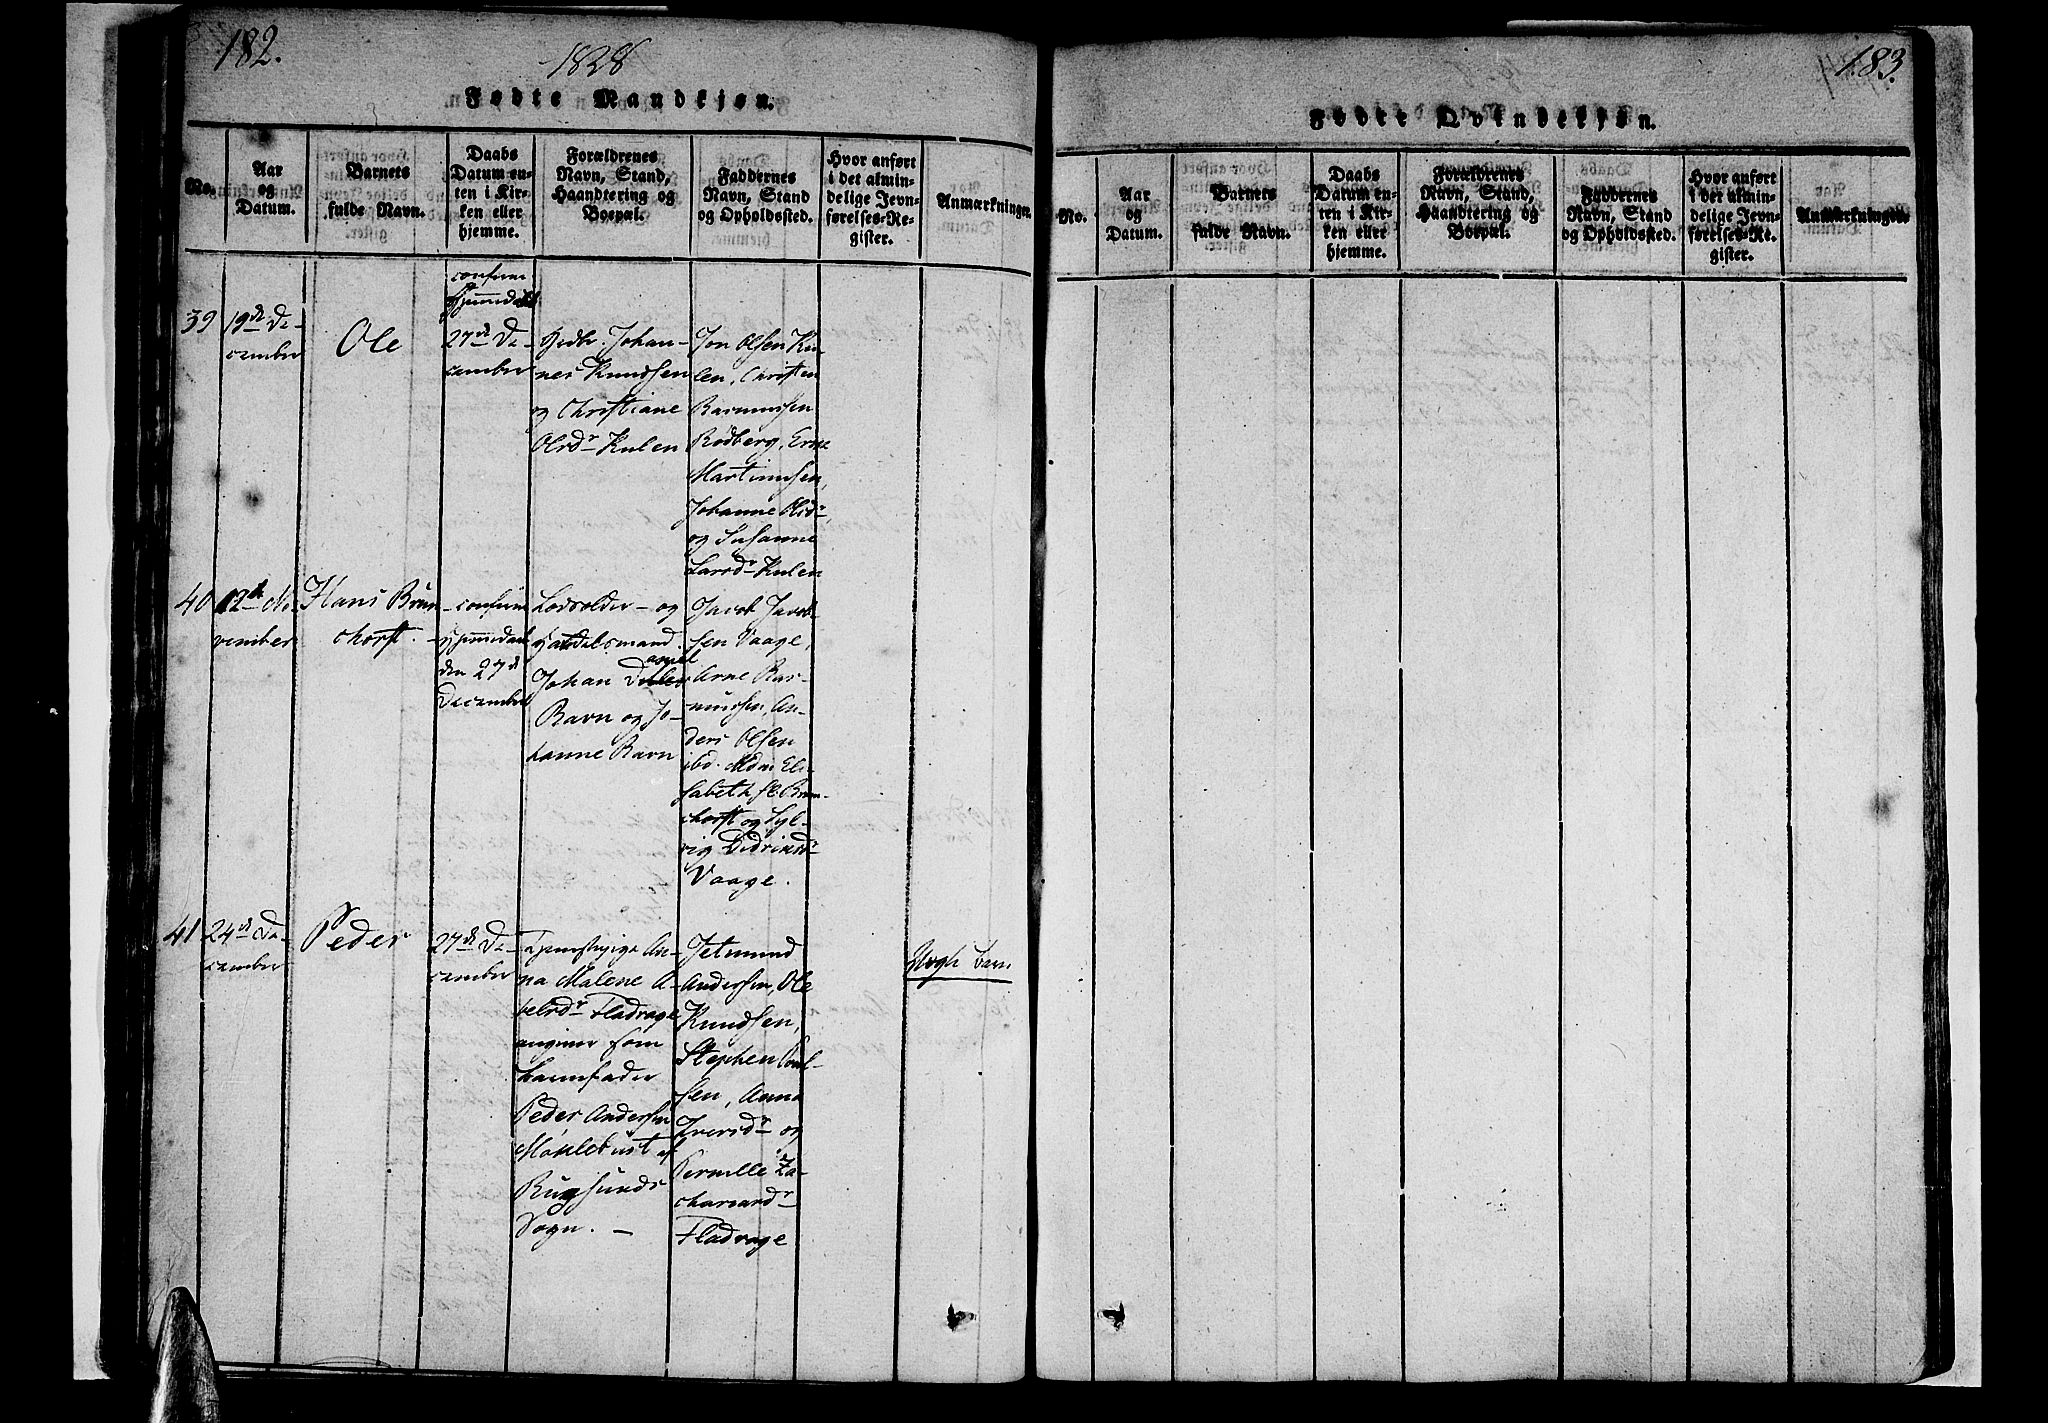 182.
1828
Fødte Mandkjøn.
No.
Aar
og
Datum.
Barnets
fulde Navn.
Daabs
Datum en-
ten i Kir-
ken eller
hjemme.
Forældrenes
Navn, Stand,
Haandtering og
Boepæl.
Faddernes
Navn, Stand
og Opholdssted.
Hvor anført
i det almin-
delige Jevn-
førelses-Re-
gister.
Anmærkninger.
39
19de De-
cember
Ole
confirm
hjemmedaab
27de De-
cember
Gdbr. Johan-
nes Knudsen
og Christiane
Olsdr Kulen
Jon Olsen Ku-
len, Christen
Rasmussen
Rødberg, Erne
Martinusen,
Johanne Olsdr,
og Susanne
Larsdr Kulen
40
12te No-
vember
Hans Brun-
chorst.
confirm
hjemmedaab
den 27de
December
Lodsolder- og
Handelsmand
Johan
Ravn og Jo-
hanne Ravn
Jacob Jacob-
sen Vaage,
Arne Ras-
mussen, An-
ders Olsen
ibd. Mdm Eli-
sabeth sl. Brun-
chorst og Syl-
vig Didriksdr
Vaage.
41
24de De-
cember
Peder
27de De-
cember
Tjenestepige An-
na Malene A-
belsdr Fladrage
angiver som
barnefader
Peder Andersen
Møklebust af
Rugsunds
Sogn. —
Jetmund
Andersen, Ole
Knudsen,
Stephen Poul-
sen, Anna
Iversdr og
Pernille Za-
chariasdr
Fladrage
Uægte barn
183.
Fødte Qvindekjøn.
No.
Aar
og
Datum.
Barnets
fulde Navn.
Daabs
Datum en-
ten i Kir-
ken eller
hjemme.
Forældrenes
Navn, Stand,
Haandtering og
Boepæl.
Faddernes
Navn, Stand
og Opholdssted.
Hvor anført
i det almin-
delige Jevn-
førelses-Re-
gister.
Anmærkninger.